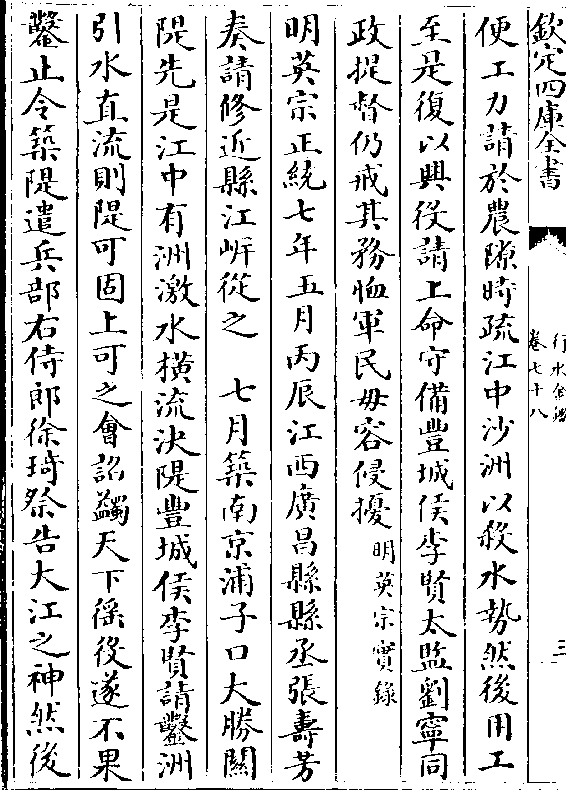 欽定四庫全書
行水金鑑
卷七十八
三
便工力請於農隙時疏江中沙洲以殺水勢然後用工
至是復以興役請上命守備豐城侯李賢太監劉寧同
政提督仍戒其務恤軍民毋容侵擾明英宗實錄
明英宗正統七年五月丙辰江西廣昌縣縣丞張壽芳
奏請修近縣江岍從之 七月築南京浦子口大勝關
隄先是江中有洲激水橫流決隄豐城侯李賢請鑿洲
引水直流則隄可固上可之會詔蠲天下徭役遂不果
鑿止令築隄遣兵部右侍郎徐琦祭告大江之神然後